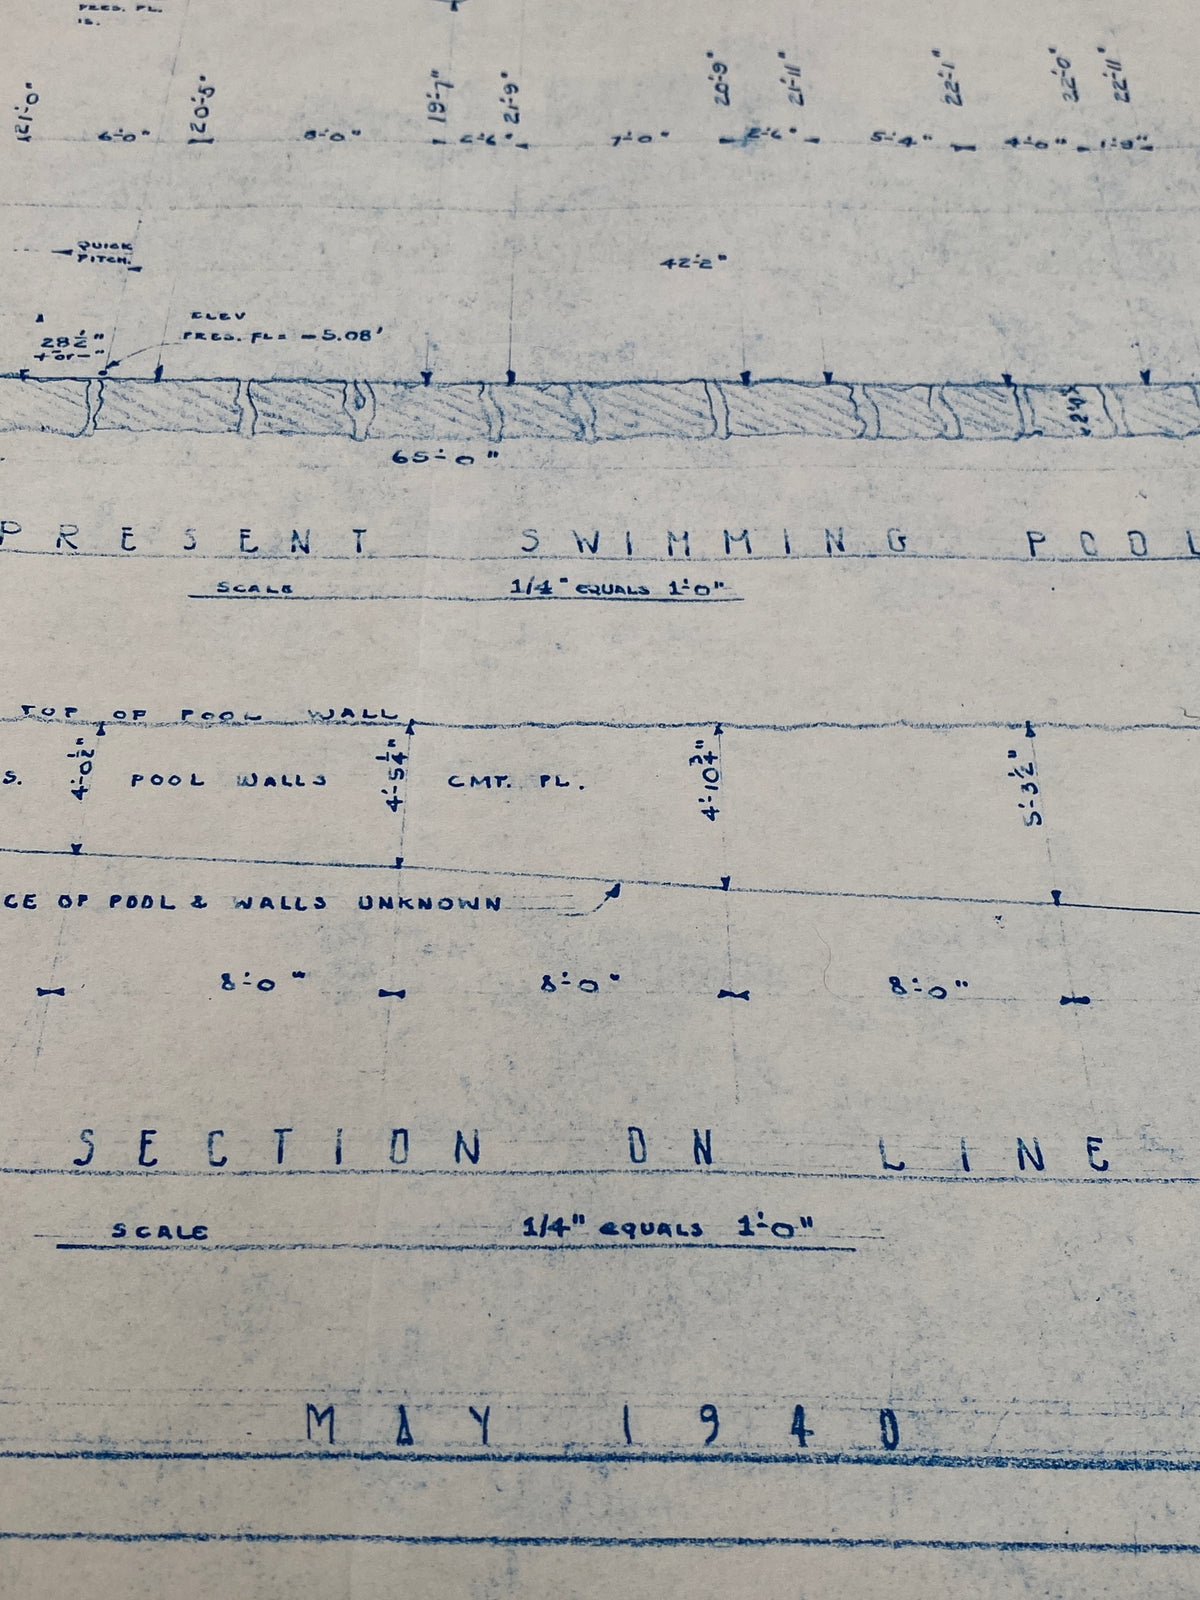 PRES. FL.
IS.
21'-0" 20'-5" 19'-7" 21'-9" 20'-9" 21'-11" 22'-1" 22'-0" 22'-11"
6'-0" 8'-0" 2'-6" 7'-0" 2'-6" 5'-4" 4'-0"
QUICK
PITCH.
42'-2"
ELEV
PRES. FL= -5.08'
28½"
+ or -"
65'-0"
PRESENT SWIMMING POOL
SCALE 1/4" EQUALS 1'-0"
TOP OF POOL WALL
4'-0½" 4'-5¼" 4'-10¾" 5'-3½"
S. POOL WALLS CMT. PL.
CE OF POOL & WALLS UNKNOWN
8'-0" 8'-0" 8'-0"
SECTION ON LINE
SCALE 1/4" EQUALS 1'-0"
MAY 1940